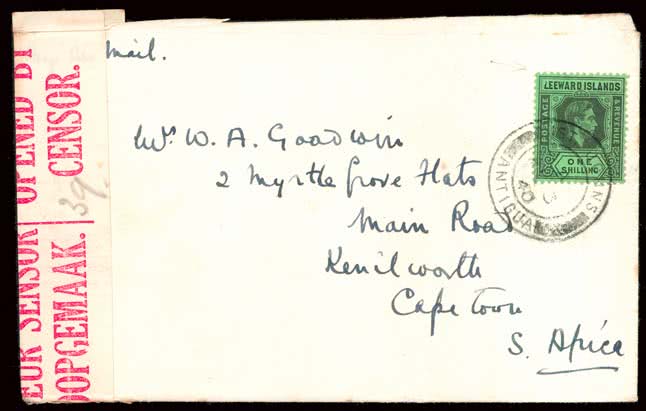 OPENED BY
CENSOR.
39.
EUR SENSOR
OOPGEMAAK.
mail.
Mrs. W. A. Goodwin
2 Myrtle Grove Flats
Main Road
Kenilworth
Cape Town
S. Africa
LEEWARD ISLANDS
POSTAGE
& REVENUE
ONE
SHILLING
ANTIGUA
40